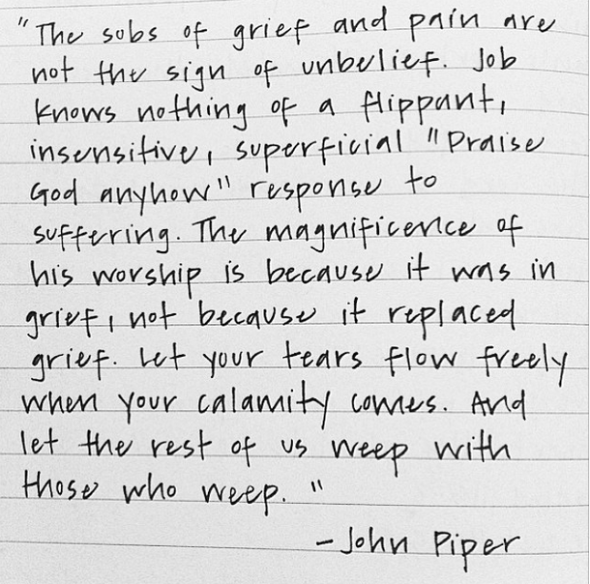 "The sobs of grief and pain are
not the sign of unbelief. Job
knows nothing of a flippant,
insensitive, superficial "Praise
God anyhow" response to
suffering. The magnificence of
his worship is because it was in
grief, not because it replaced
grief. Let your tears flow freely
when your calamity comes. And
let the rest of us weep with
those who weep."
- John Piper